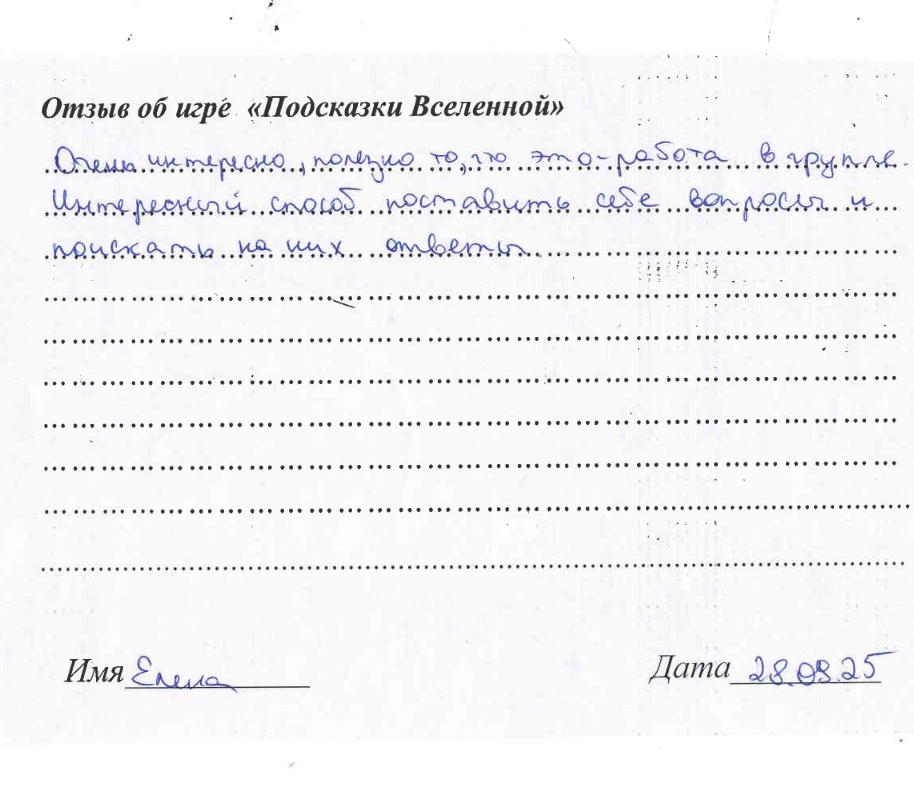 Отзыв об игре «Подсказки Вселенной»
Очень интересно, полезно то, что это - работа в группе.
Интересный способ поставить себе вопросы и
поискать на них ответы.
Имя Елена Дата 28.09.25